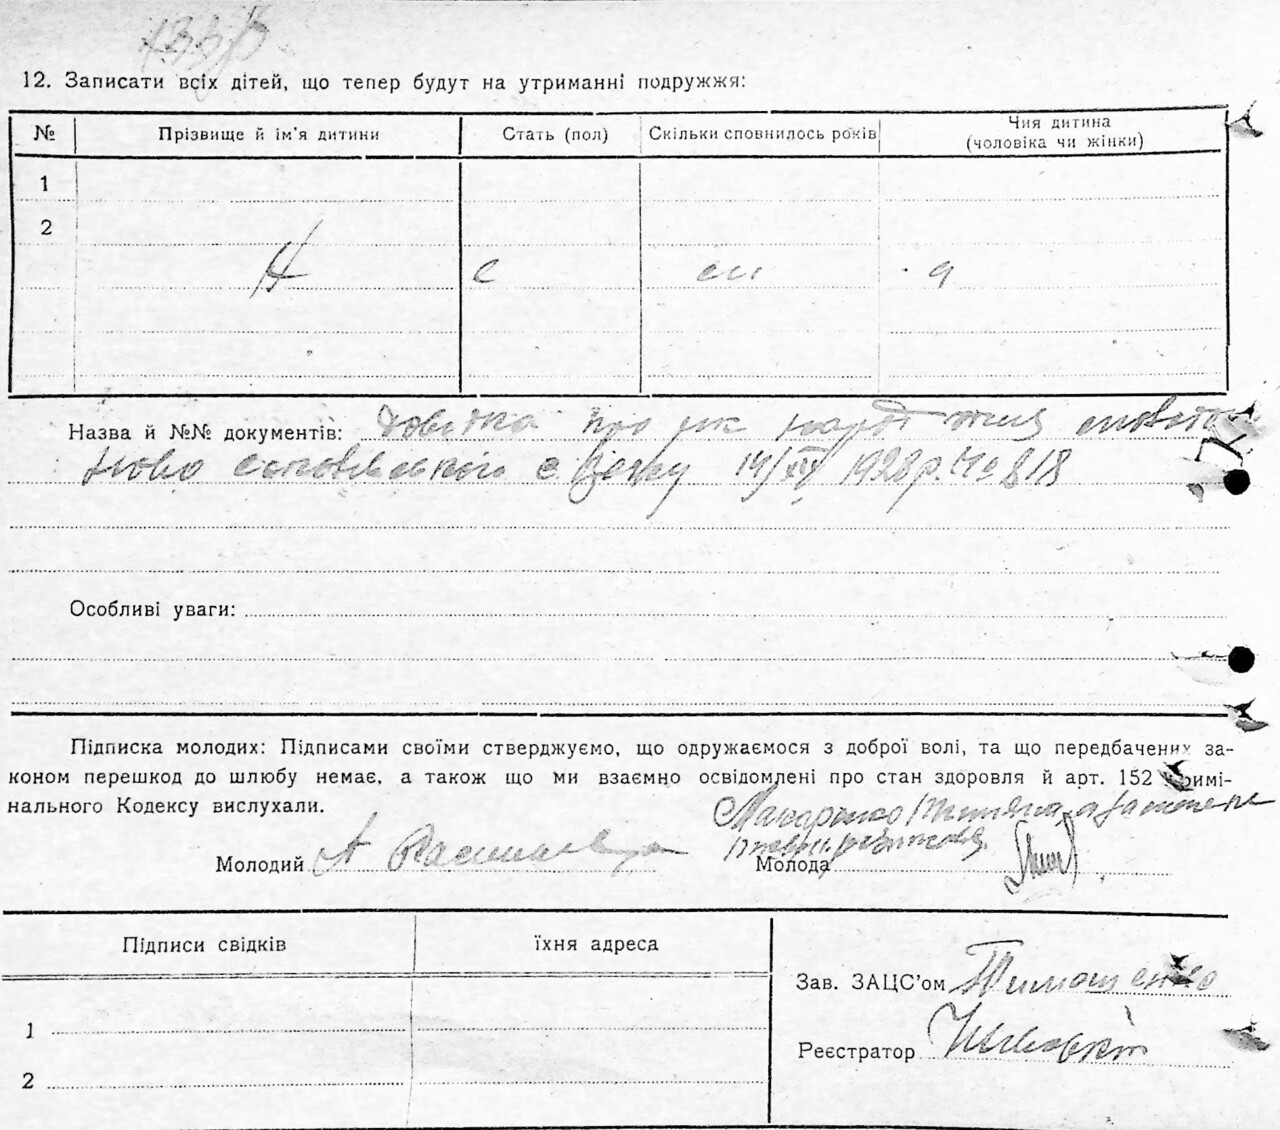 12. Записати всіх дітей, що тепер будут на утриманні подружжя:
№ Прізвище й ім'я дитини Стать (пол) Скільки сповнилось років Чия дитина
(чоловіка чи жінки)
1
2
Назва й №№ документів: Довідка про
14/XII 1928 р. № 818
Особливі уваги:
Підписка молодих: Підписами своїми стверджуємо, що одружаємося з доброї волі, та що передбачених за-
коном перешкод до шлюбу немає, а також що ми взаємно освідомлені про стан здоровля й арт. 152 Кримі-
нального Кодексу вислухали.
Макаренко
Молодий А Молода
Підписи свідків їхня адреса
Зав. ЗАЦС'ом Тимошенко
1
Реєстратор
2